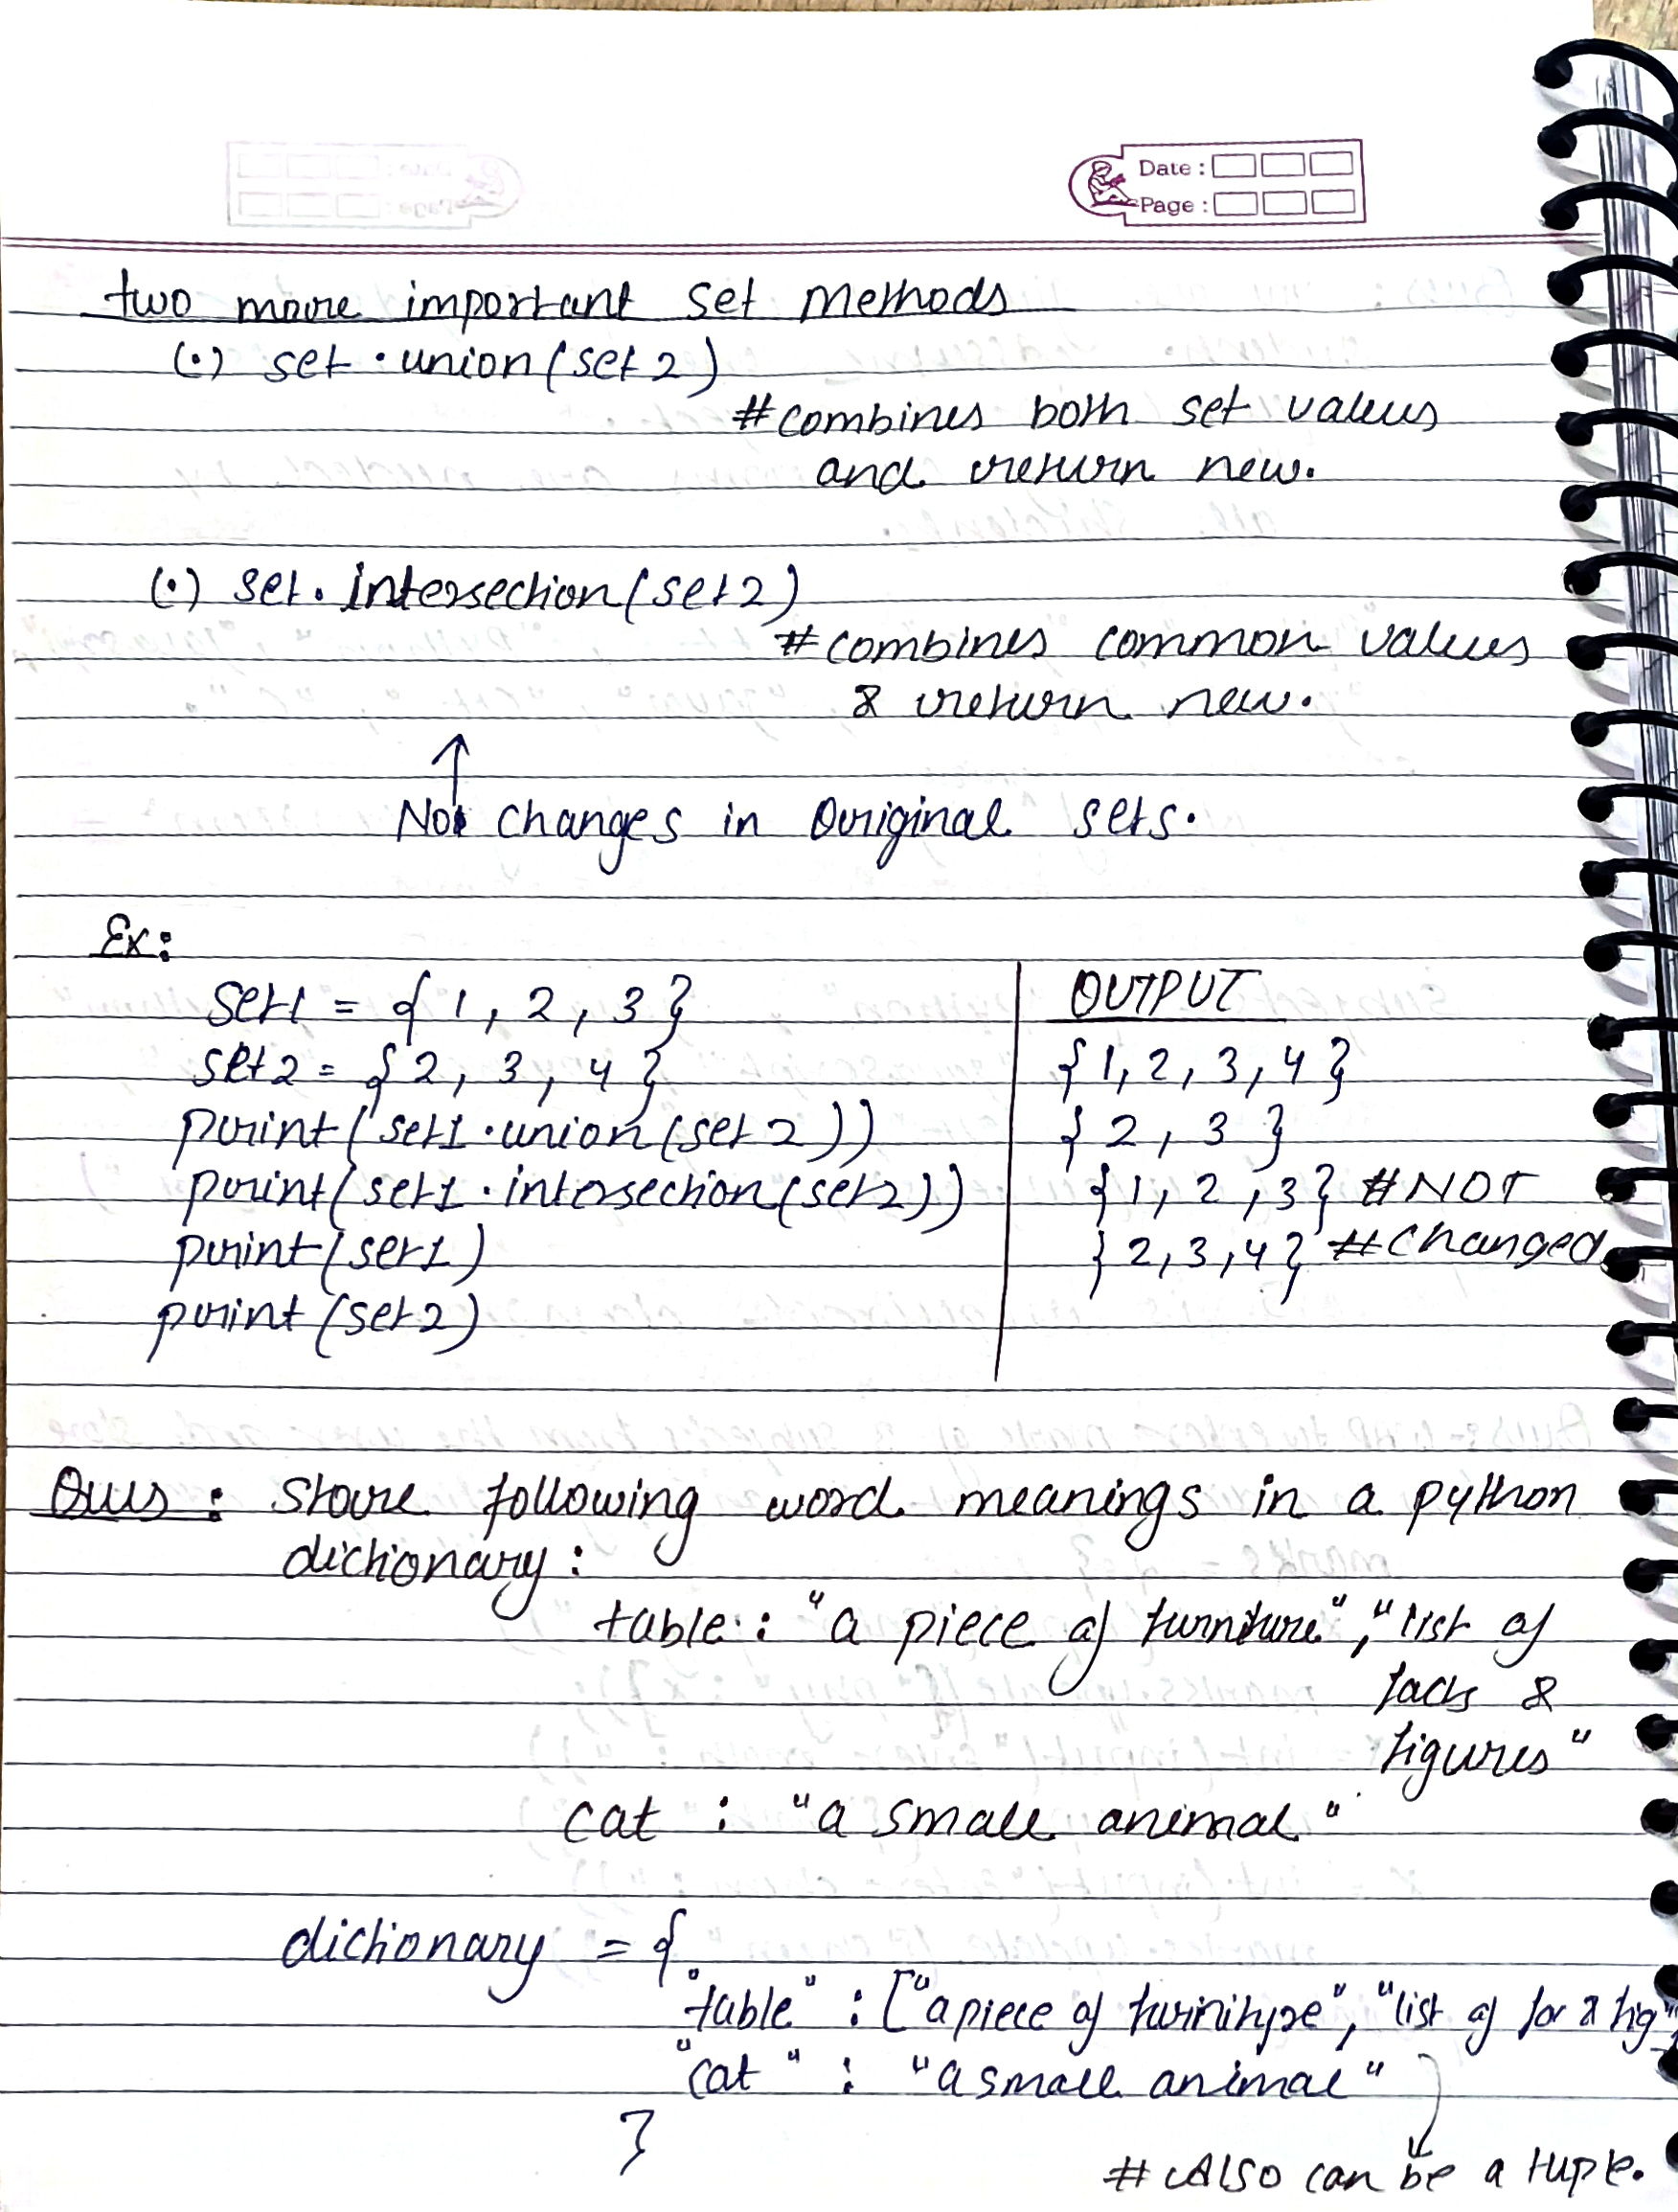 Date :
Page :
two more important set Methods
(•) set.union(set2)
#combines both set values
and return new.
(•) set.intersection(set2)
#combines common values
& return new.
↑
No changes in Original sets.
Ex:
set1 = {1, 2, 3}
set2 = {2, 3, 4}
print(set1.union(set2))
print(set1.intersection(set2))
print(set1)
print(set2)
OUTPUT
{1, 2, 3, 4}
{2, 3}
{1, 2, 3} #NOT
{2, 3, 4} #Changed
Ques: Store following word meanings in a python
dictionary:
table : "a piece of furniture", "list of
facts &
figures"
cat : "a small animal"
dictionary = {
"table" : ["a piece of furniture", "list of for & fig"
"cat" : "a small animal"
}
# Also can be a tuple.